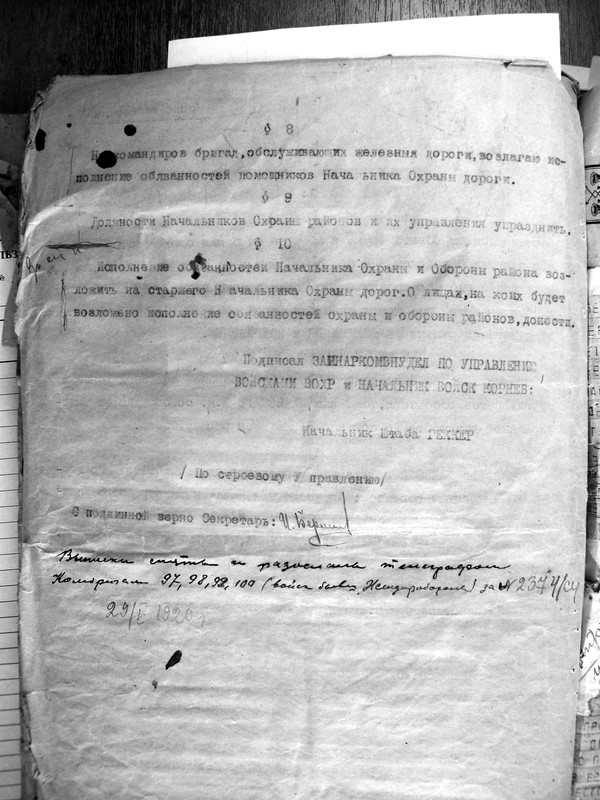 § 8
На командиров бригад,обслуживающих железныя дороги,возлагаю ис-
полнение обязанностей помощников Нача льника Охраны дороги.
§ 9
Должности Начальников Охраны районов и их управления упразднить.
§ 10
Исполнение обязанностей Начальника Охраны и Обороны района воз-
ложить на старшего Н ачальника Охраны дорог.О лицах,на коих будет
возложено исполнен ие обязанностей охраны и обороны районов,донести.
Подписал ЗАМНАРКОМВНУДЕЛ ПО УПРАВЛЕНИЮ
ВОЙСКАМИ ВОХР и НАЧАЛЬНИК ВОЙСК КОРНЕВ:
Начальник Штаба ГЕККЕР
/ По строевому У правлению/
С подлинной верно Секретарь:
Выписки сняты и разосланы телеграфом
Комбригам 97,98,99,100 (войск бывш. ) за № 2374/сч
29/I 1920 г